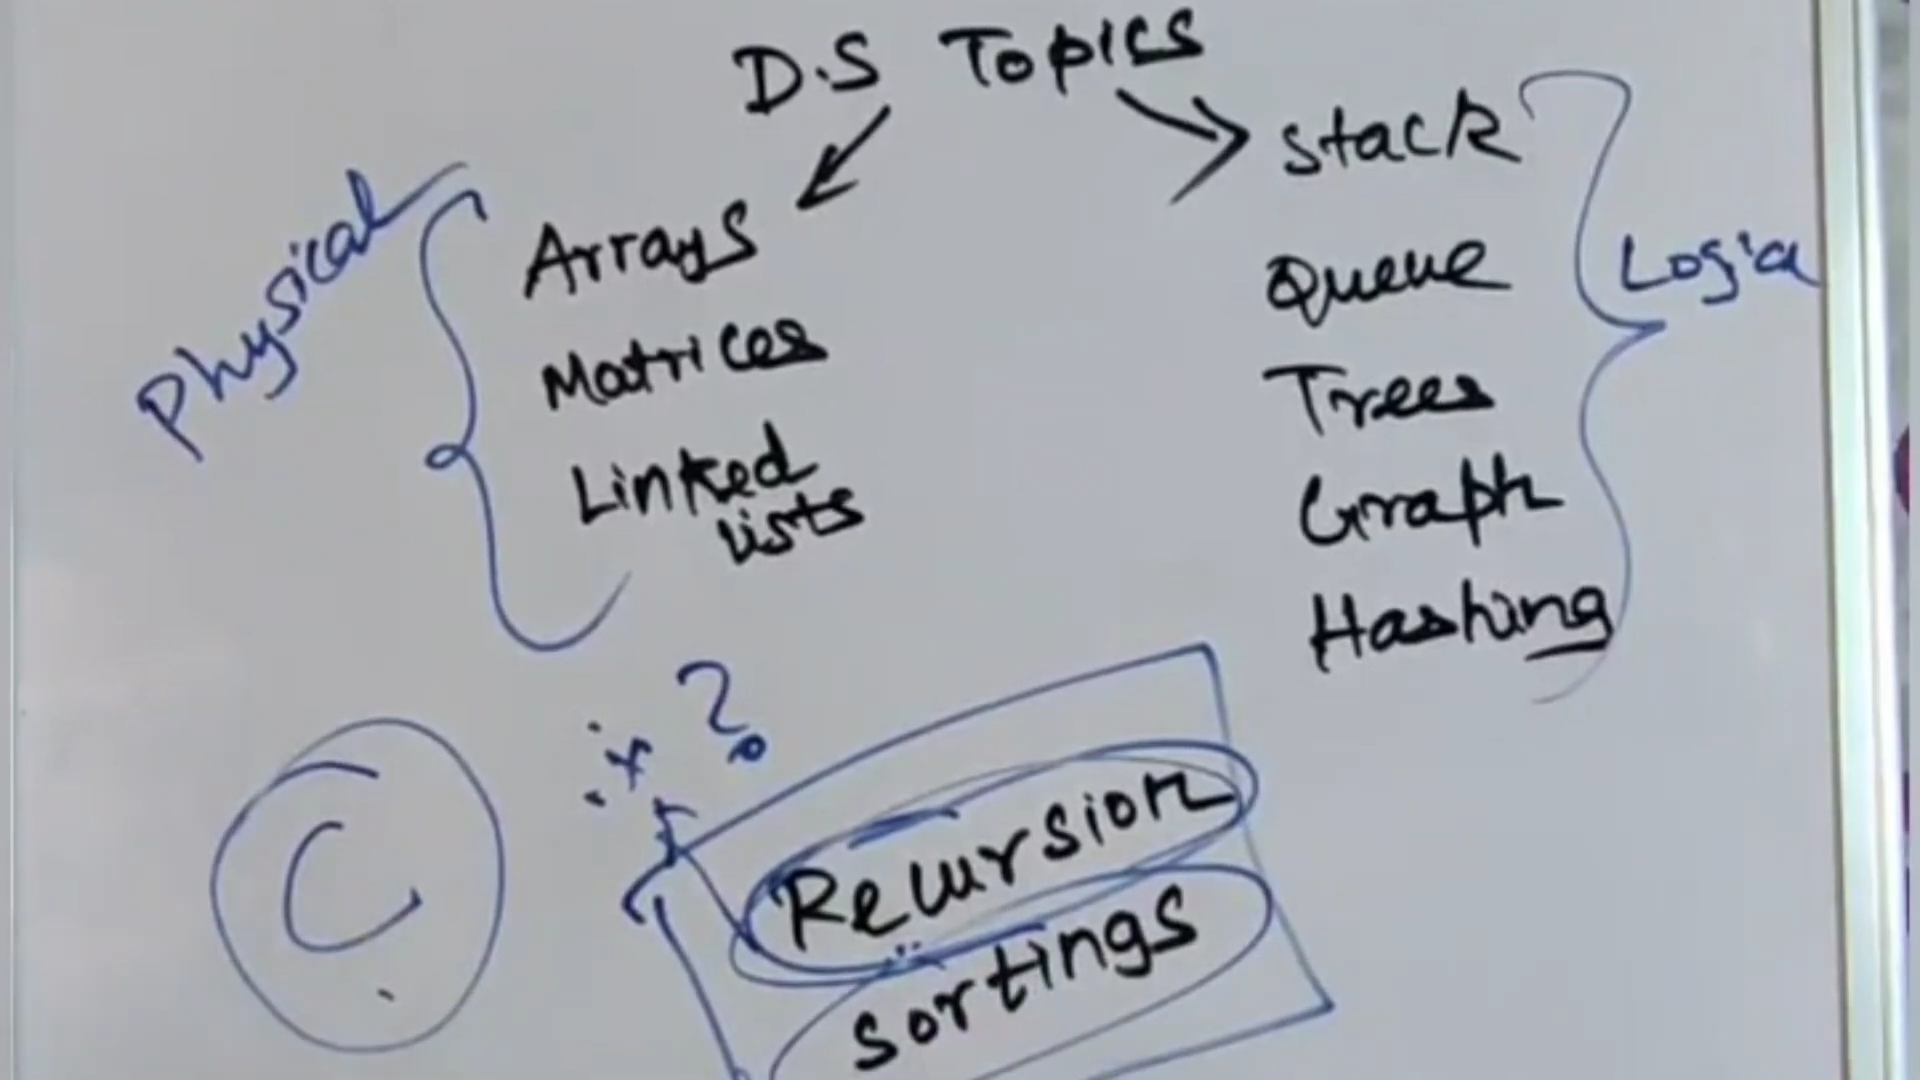 D.S Topics
Physical
Arrays
Matrices
Linked
lists
Stack
Queue
Trees
Graph
Hashing
Logica
C
?
Recursion
Sortings